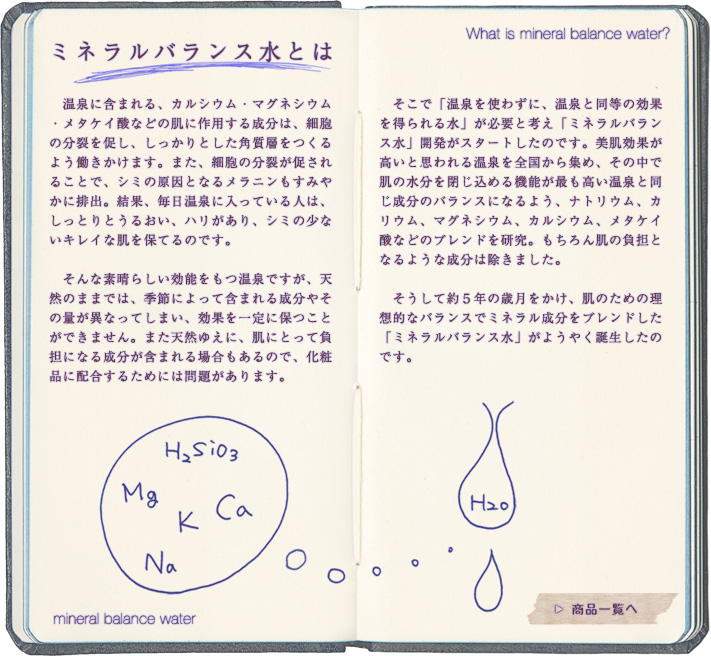 ミネラルバランス水とは
温泉に含まれる、カルシウム・マグネシウム
・メタケイ酸などの肌に作用する成分は、細胞
の分裂を促し、しっかりとした角質層をつくる
よう働きかけます。また、細胞の分裂が促され
ることで、シミの原因となるメラニンもすみや
かに排出。結果、毎日温泉に入っている人は、
しっとりとうるおい、ハリがあり、シミの少な
いキレイな肌を保てるのです。
そんな素晴らしい効能をもつ温泉ですが、天
然のままでは、季節によって含まれる成分やそ
の量が異なってしまい、効果を一定に保つこと
ができません。また天然ゆえに、肌にとって負
担になる成分が含まれる場合もあるので、化粧
品に配合するためには問題があります。
H2SiO3
Mg
Ca
K
Na
mineral balance water
What is mineral balance water?
そこで「温泉を使わずに、温泉と同等の効果
を得られる水」が必要と考え「ミネラルバラン
ス水」開発がスタートしたのです。美肌効果が
高いと思われる温泉を全国から集め、その中で
肌の水分を閉じ込める機能が最も高い温泉と同
じ成分のバランスになるよう、ナトリウム、カ
リウム、マグネシウム、カルシウム、メタケイ
酸などのブレンドを研究。もちろん肌の負担と
なるような成分は除きました。
そうして約５年の歳月をかけ、肌のための理
想的なバランスでミネラル成分をブレンドした
「ミネラルバランス水」がようやく誕生したの
です。
H2O
▷ 商品一覧へ